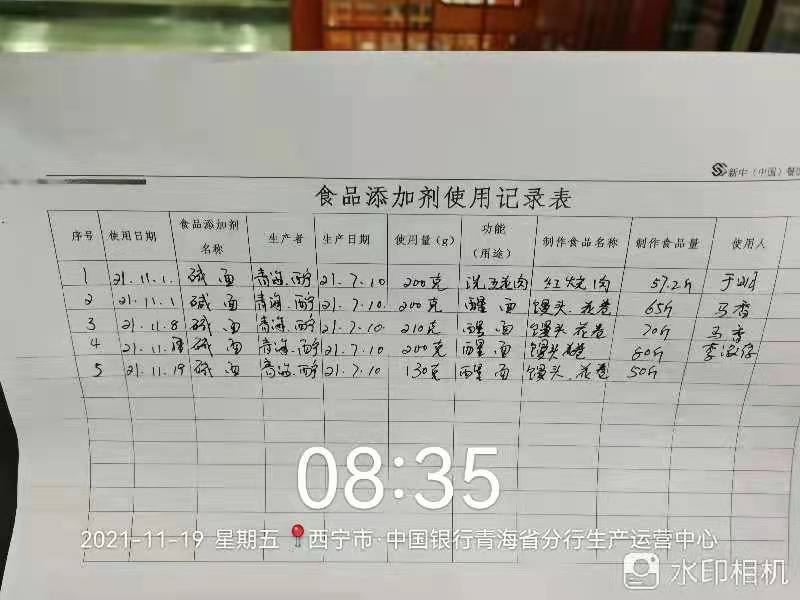 新中（中国）餐饮
食品添加剂使用记录表
序号 使用日期 食品添加剂名称 生产者 生产日期 使用量（g） 功能（用途） 制作食品名称 制作食品量 使用人
1 21.11.1. 碱面 青海.西宁 21.7.10 200克 洗五花肉 红烧肉 57.2斤 于
2 21.11.1 碱面 青海.西宁 21.7.10. 200克 醒面 馒头.花卷 65斤 马香
3 21.11.8 碱面 青海.西宁 21.7.10. 210克 醒面 馒头.花卷 70斤 马香
4 21.11. 碱面 青海.西宁 21.7.10. 200克 醒面 馒头花卷 60斤 李
5 21.11.19 碱面 青海.西宁 21.7.10 130克 醒面 馒头.花卷 50斤
08:35
2021-11-19 星期五 西宁市·中国银行青海省分行生产运营中心
水印相机